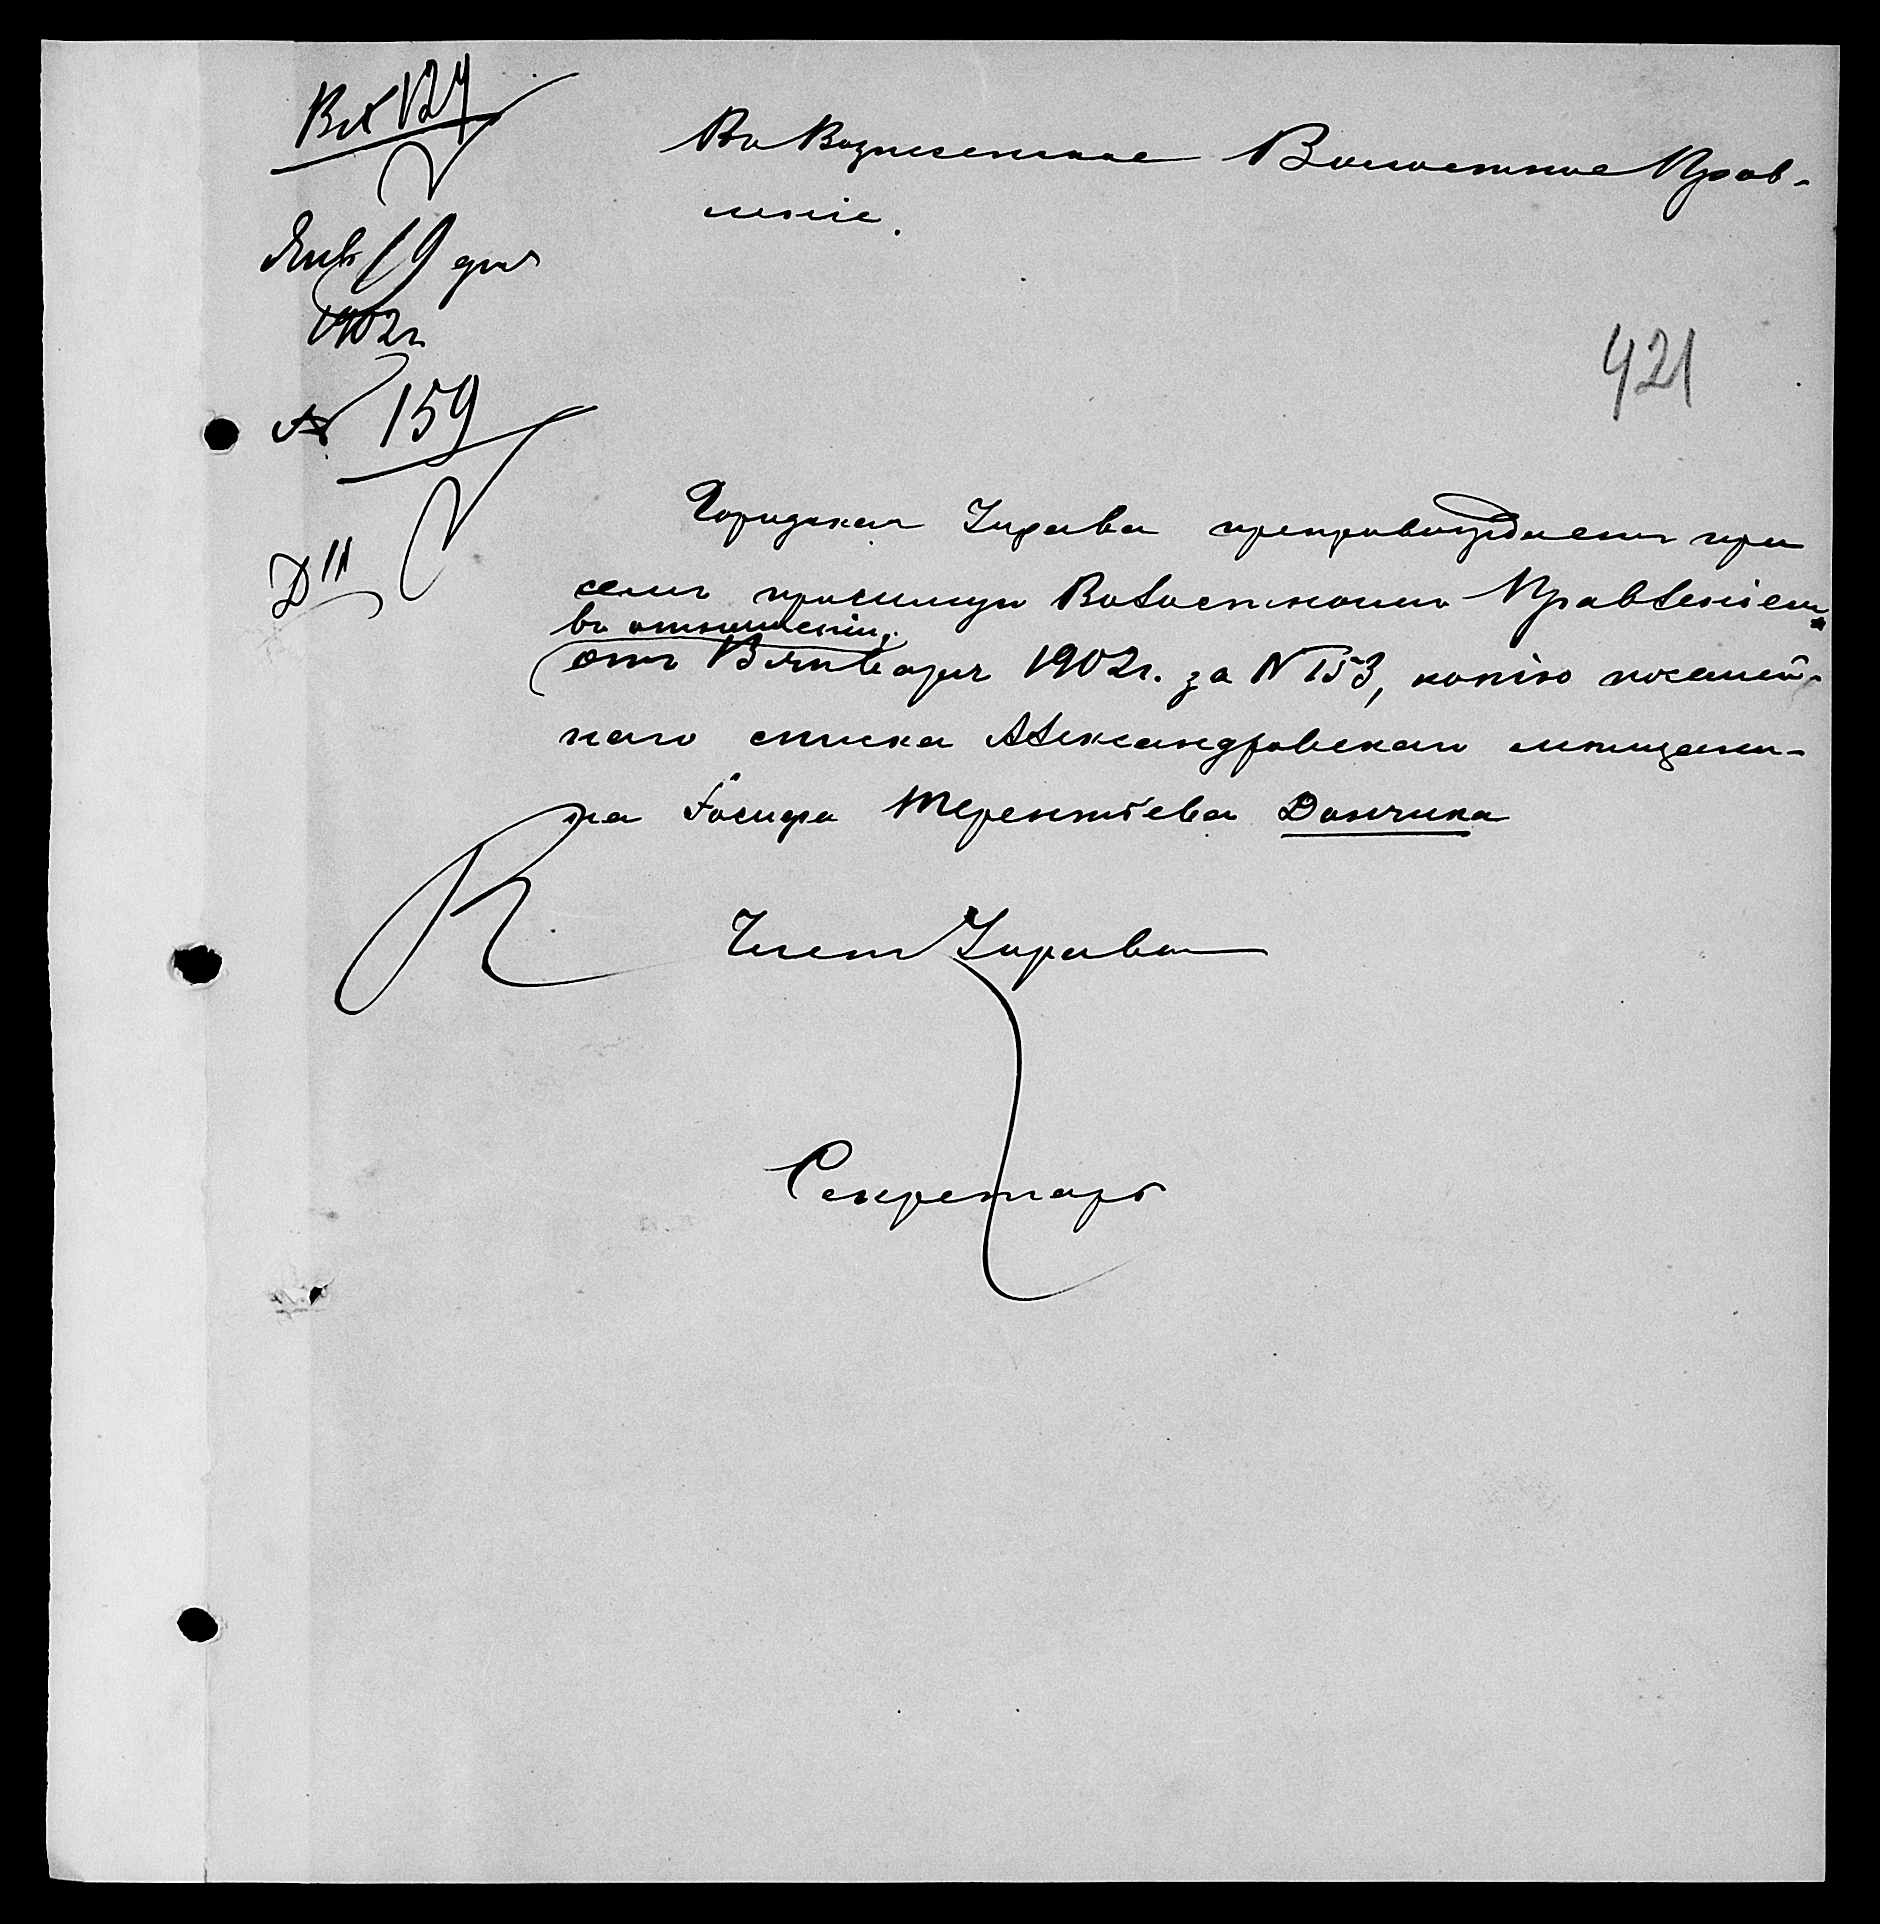 Вх 127
Янв 19 дня
1902 г.
№ 159
Д II
Въ Вознесенское Волостное Прав-
леніе.
421
Городская Управа препровождаетъ при
семъ просимую Волостнымъ Правленіемъ
въ отношеніи,
отъ 13 января 1902 г. за N 153, копію посемей-
наго списка Александровскаго мѣщани-
на Іосифа Терентьева Дончика
Членъ Управы
Секретарь